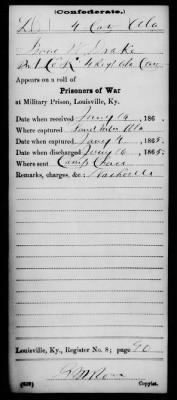 (Confederate.)
D 4 Cav Ala
W. Drake
Pvt Co K 4 Regt Ala Cav
Appears on a roll of
Prisoners of War
at Military Prison, Louisville, Ky.
Date when received Jany 14, 186 .
Where captured Ala
Date when captured Jany 4, 1865.
Date when discharged Jany 16, 1865.
Where sent Camp Chase
Remarks, charges, &c.: Nashville
Louisville, Ky., Register No. 8; page 90
Copyist.